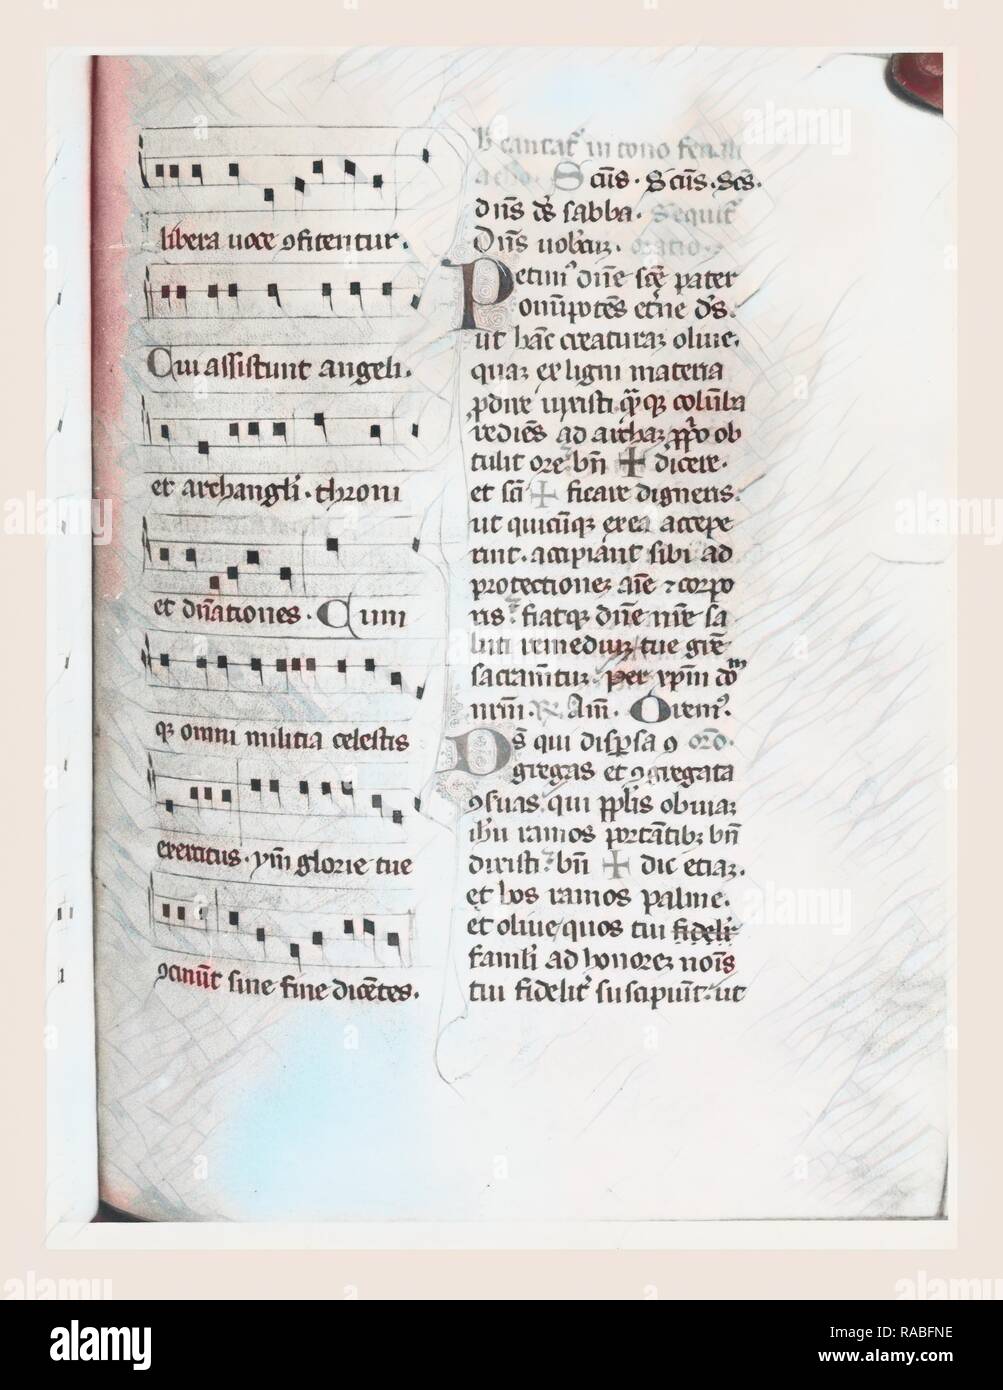 libera uoce ꝯfitentur.
Qui assistunt angeli.
et archangli. throni
et dn̄ationes. Cum
qꝫ omni militia celestis
exercitus. ym̄ glorie tue
ꝯcinūt sine fine dicētes.
cantat᷑ in tono feriali
Sc̄us. Sc̄us. Scs̄.
dn̄s ds̄ saba. Sequit᷑
Dn̄s uobcuꝫ. oratio.
Petim᷒ dn̄e sc̄e pater
om̄ipotēs et̄ne ds̄.
ut hāc creaturaꝫ oliue.
quaꝫ ex ligni materia
ꝓdire iussisti. qꝫ colūba
rediēs ad archaꝫ ꝓprio ob
tulit ore bn̄ ✠ dicere.
et sc̄i ✠ ficare digneris.
ut quicūqꝫ ex ea accepe
rint. accipiant sibi ad
protectioneꝫ aīe ⁊ corpo
ris. fiatqꝫ dn̄e nr̄e sa
luti remediuꝫ tue gr̄e
sacram̄tuꝫ. Per xp̄m dom̄
nrm̄. ℟. Am̄. Orem᷒.
Ds̄ qui disp̱sa ꝯ oro.
gregas et ꝯgregata
ꝯseruas. qui pp̄lis obuiaꝫ
ih̄u ramos portātibꝫ bn̄
dixisti. bn̄ ✠ dic etiaꝫ.
et hos ramos palme.
et oliue quos tui fideli᷑
famuli ad honoreꝫ nois̄
tui fidelit᷑ suscipiūt. ut
alamy
RABFNE
www.alamy.com